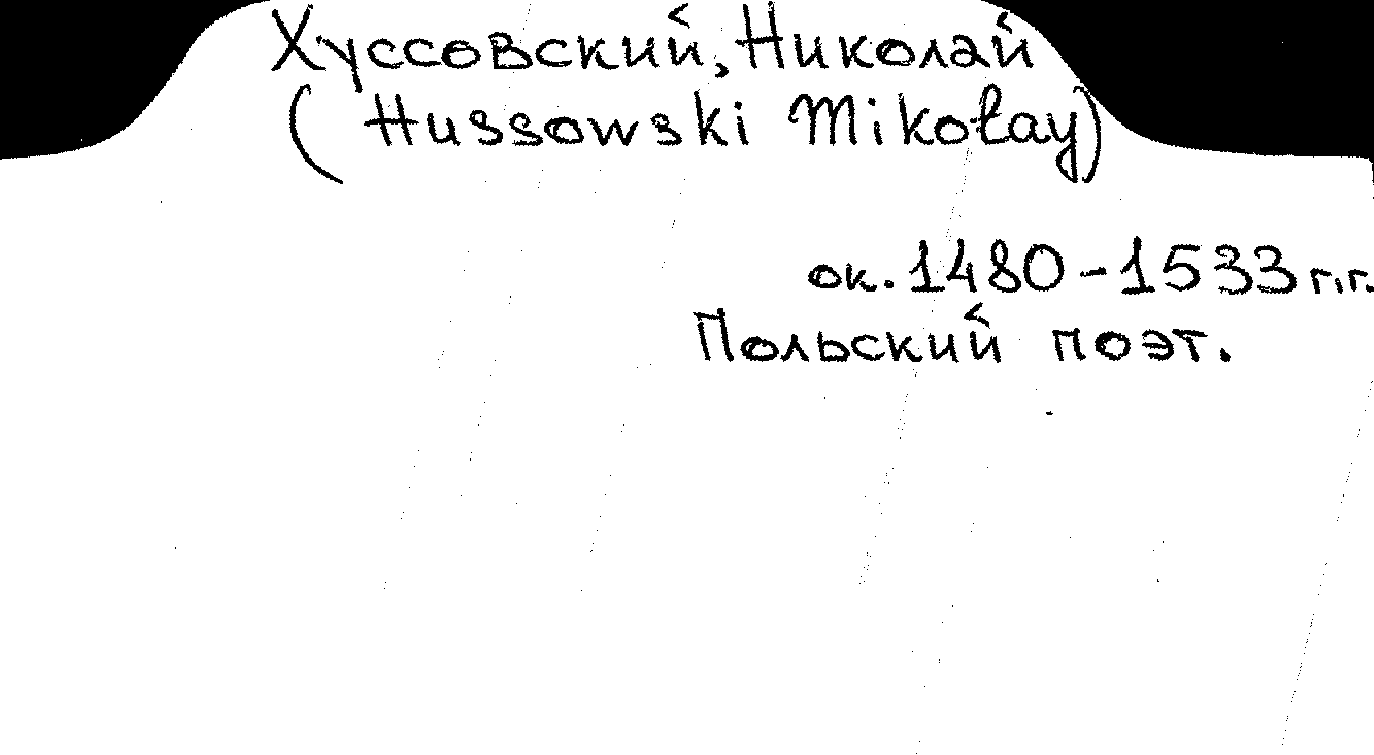 Хуссовский, Николай
(Hussowski Mikołay)
ок. 1480-1533 г.г.
Польский поэт.